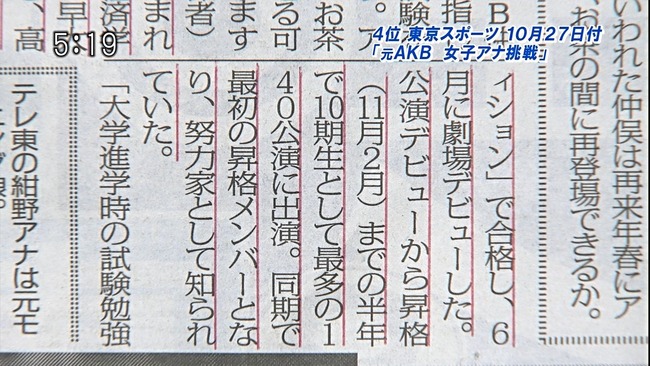 5:19
4位:東京スポーツ 10月27日付
「元AKB 女子アナ挑戦」
いわれた仲俣は再来年春にア
お茶の間に再登場できるか。
B
指
験
ア
お茶
る可
ます
者)
まれ
済学
早
、高
ィション」で合格し、6
月に劇場デビューした。
公演デビューから昇格
(11月2月)までの半年
で10期生として最多の1
40公演に出演。同期で
最初の昇格メンバーとな
り、努力家として知られ
ていた。
「大学進学時の試験勉強
テレ東の紺野アナは元モ